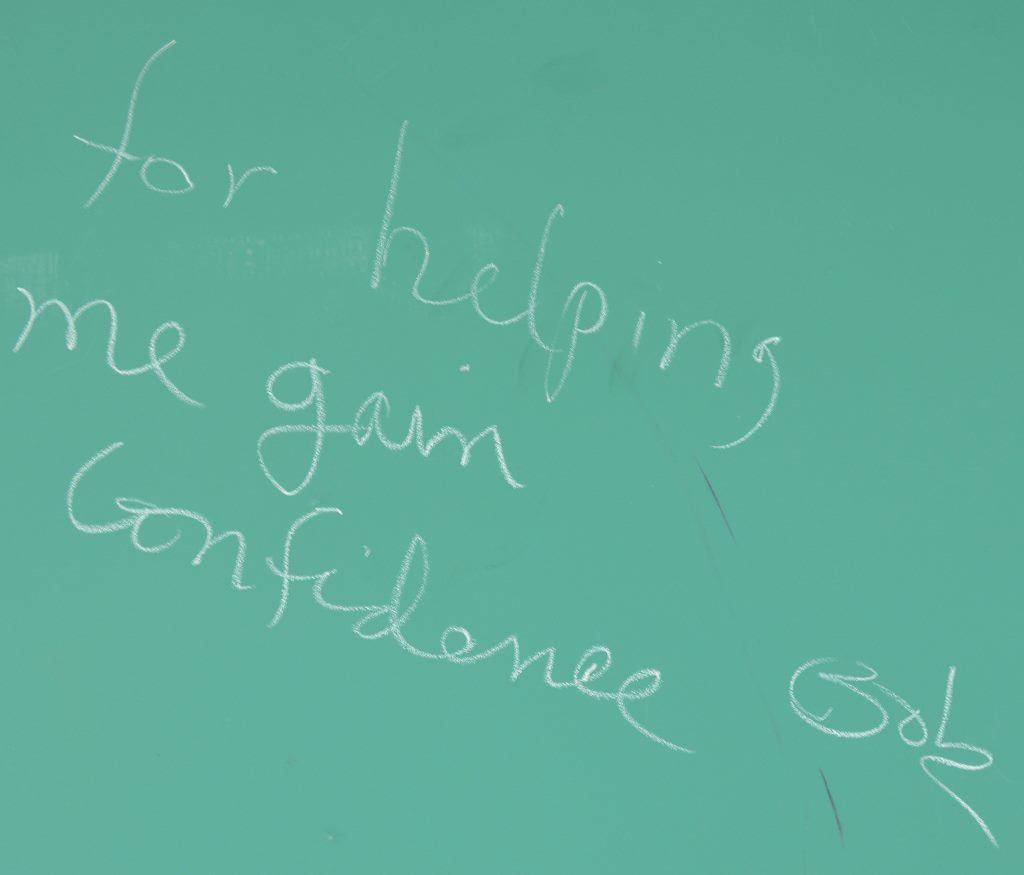 for helping
me gain
Confidence Bob